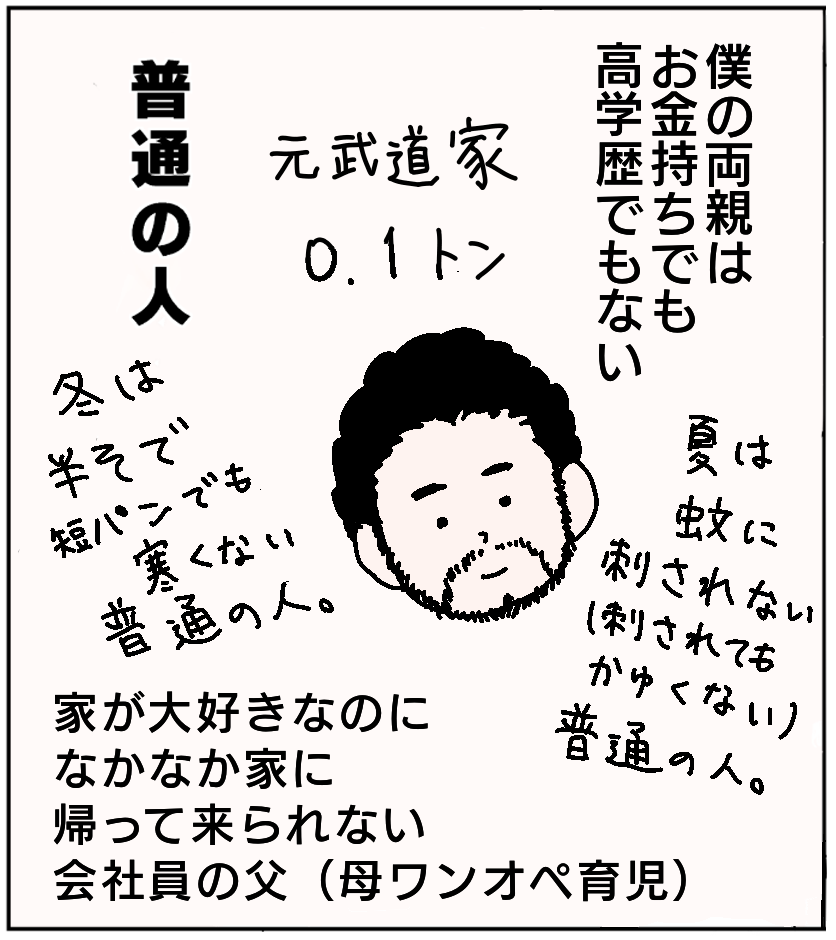 僕の両親は
お金持ちでも
高学歴でもない
元武道家
0.1トン
普通の人
夏は
蚊に
刺されない
(刺されても
かゆくない)
普通の人。
冬は
半そで
短パンでも
寒くない
普通の人。
家が大好きなのに
なかなか家に
帰って来られない
会社員の父（母ワンオペ育児）